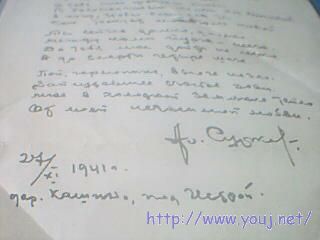 Ты сейчас далеко, далеко
Между нами снега и снега
До тебя мне дойти не легко
А до смерти четыре шага.
Пой, гармоника, вьюге назло
Заплутавшее счастье зови.
Мне в холодной землянке тепло
От моей негасимой любви.
Ал. Сурков
27/XI 1941 г.
дер. Кашино, под Истрой.
http://www.youj.net/